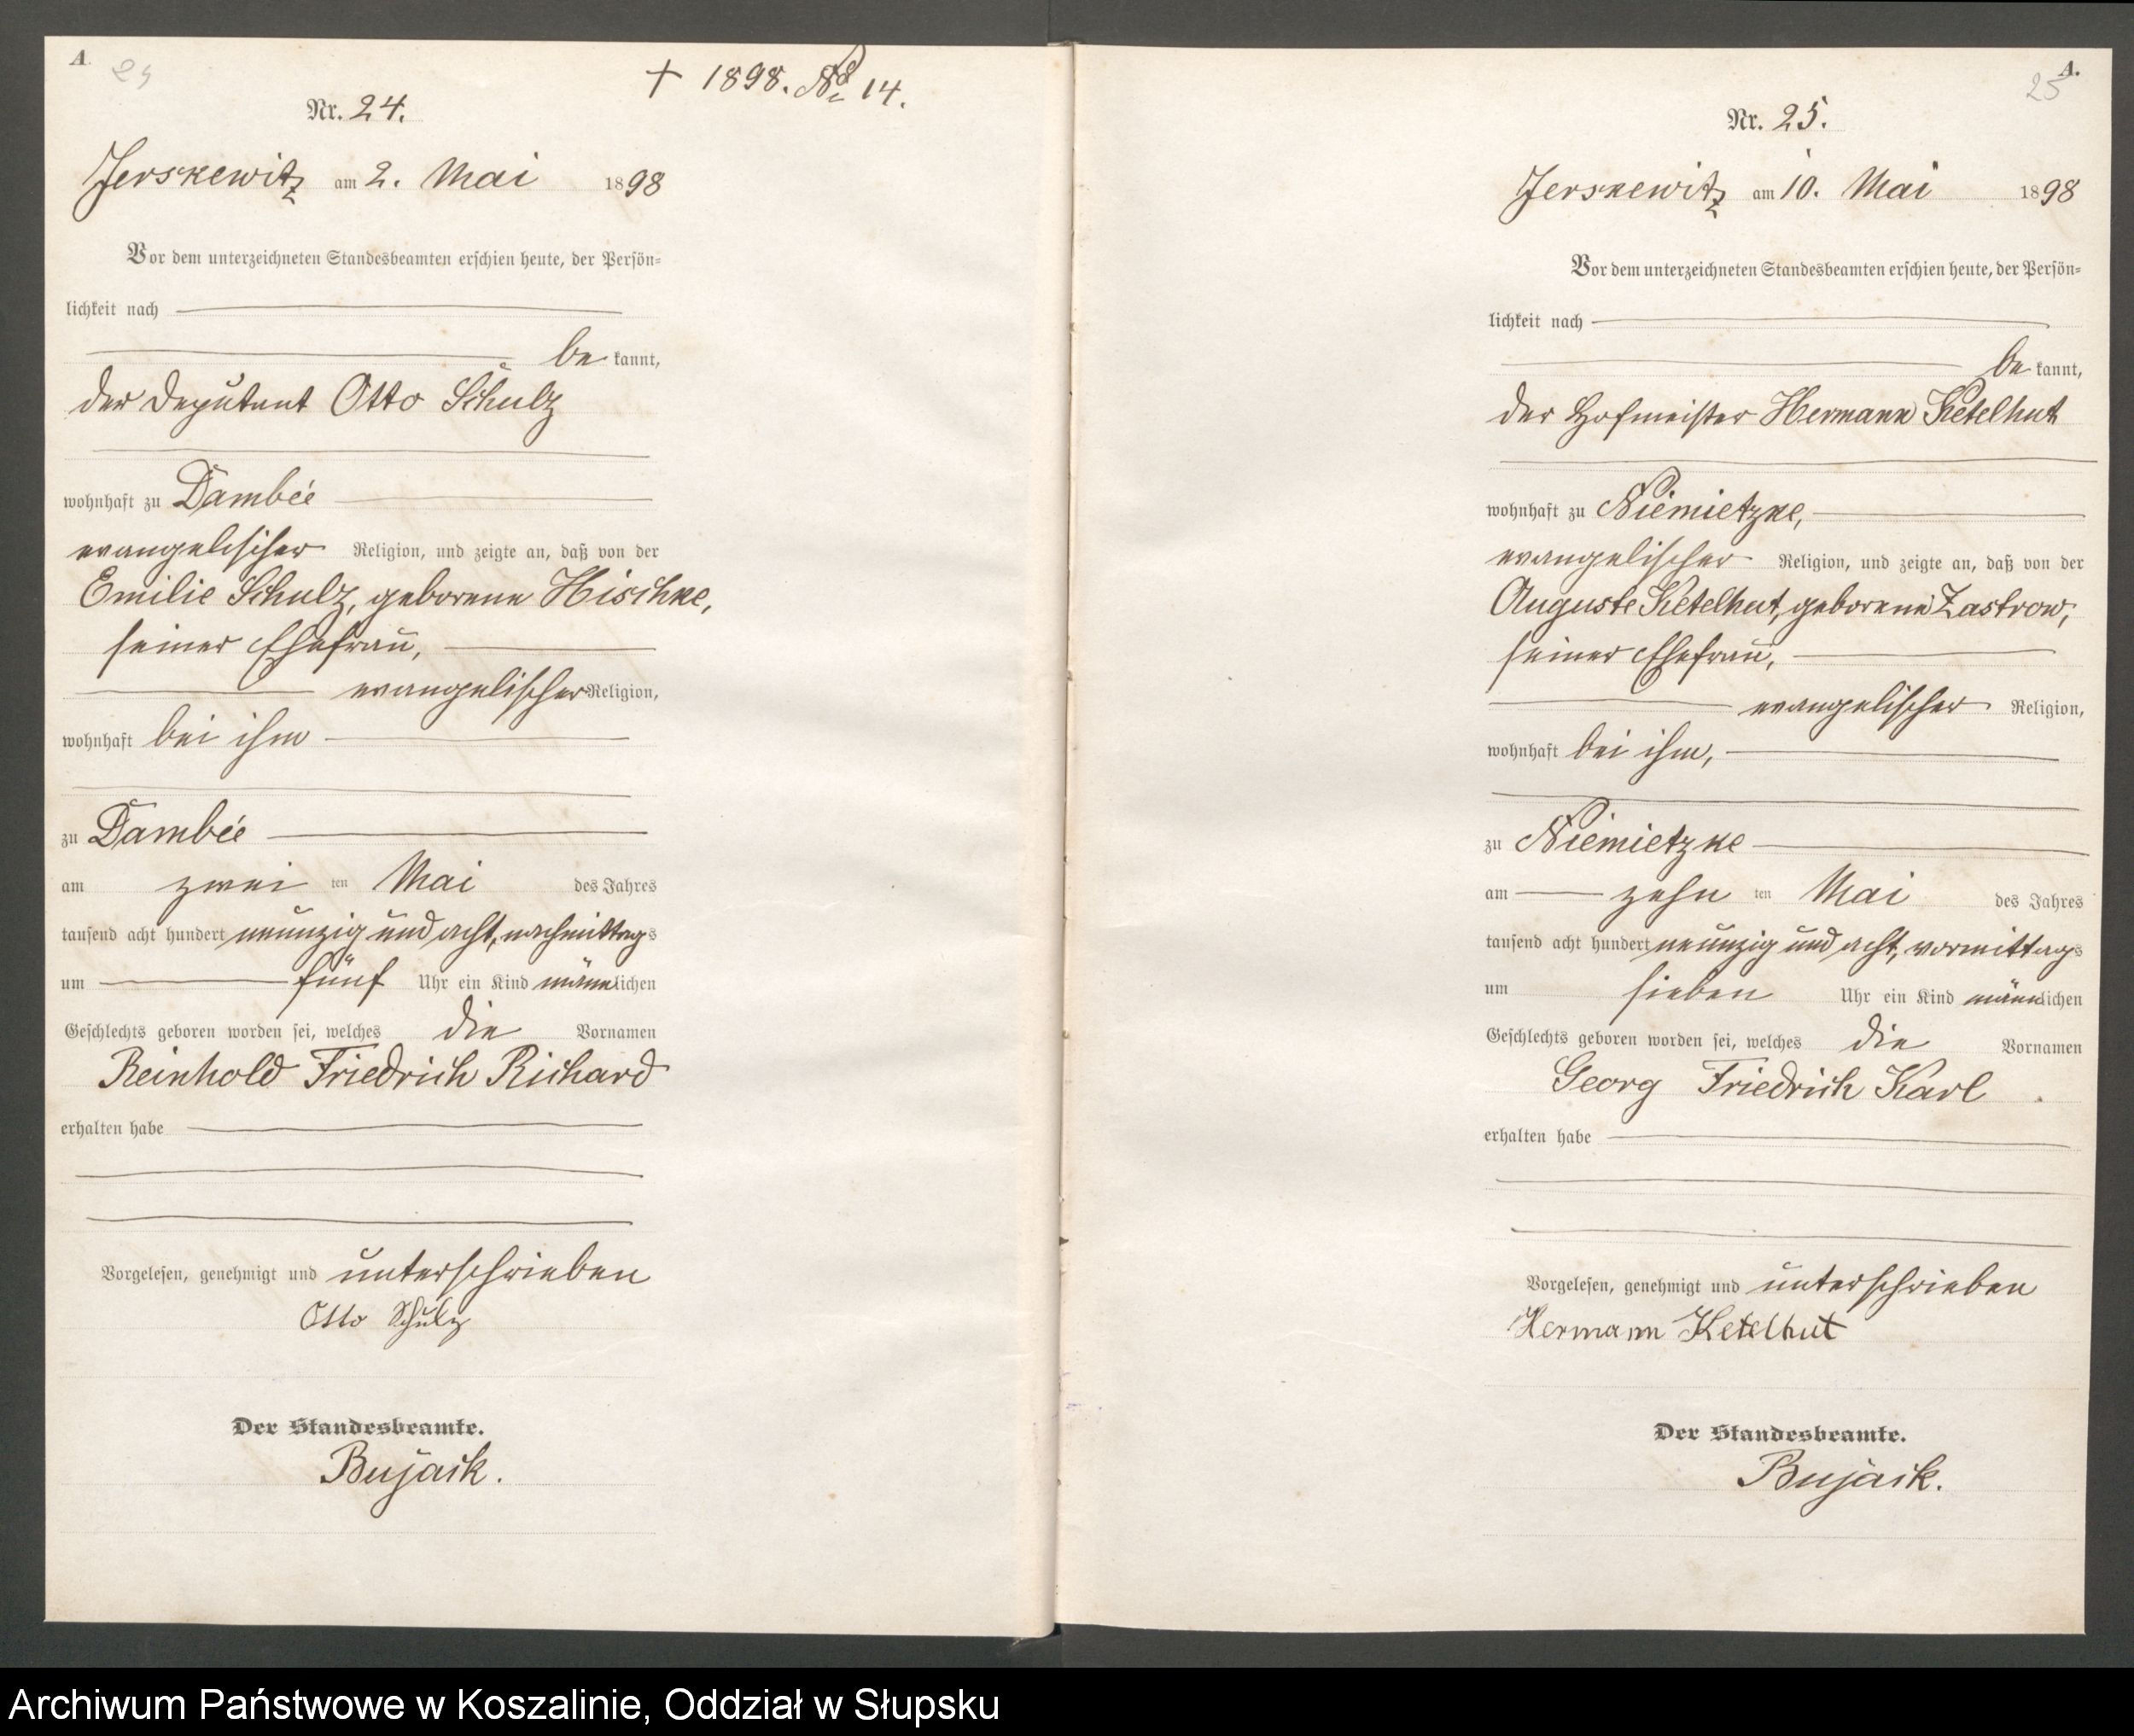 A
24
† 1898. No 14.
Nr. 24.
Jerskewitz am 2. Mai 1898
Vor dem unterzeichneten Standesbeamten erschien heute, der Persön-
lichkeit nach
be kannt,
der Deputant Otto Schulz
wohnhaft zu Dambee
evangelischer Religion, und zeigte an, daß von der
Emilie Schulz, geborene Hischke,
seiner Ehefrau,
evangelischer Religion,
wohnhaft bei ihm
zu Dambee
am zwei ten Mai des Jahres
tausend acht hundert neunzig und acht, nachmittags
um fünf Uhr ein Kind männlichen
Geschlechts geboren worden sei, welches die Vornamen
Reinhold Friedrich Richard
erhalten habe
Vorgelesen, genehmigt und unterschrieben
Otto Schulz
Der Standesbeamte.
Bujack.
A.
25
Nr. 25.
Jerskewitz am 10. Mai 1898
Vor dem unterzeichneten Standesbeamten erschien heute, der Persön-
lichkeit nach
be kannt,
der Hofmeister Hermann Ketelhut
wohnhaft zu Niemietzke,
evangelischer Religion, und zeigte an, daß von der
Auguste Ketelhut, geborene Zastrow,
seiner Ehefrau,
evangelischer Religion,
wohnhaft bei ihm,
zu Niemietzke
am zehn ten Mai des Jahres
tausend acht hundert neunzig und acht, vormittags
um sieben Uhr ein Kind männlichen
Geschlechts geboren worden sei, welches die Vornamen
Georg Friedrich Karl
erhalten habe
Vorgelesen, genehmigt und unterschrieben
Hermann Ketelhut
Der Standesbeamte.
Bujack.
Archiwum Państwowe w Koszalinie, Oddział w Słupsku